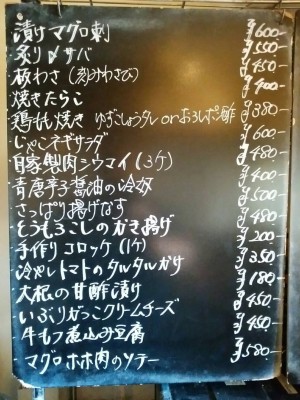 漬けマグロ刺 ¥600-
炙り〆サバ ¥550-
板わさ(刻みわさび) ¥450-
焼きたらこ ¥400-
鶏もも焼き ゆずこしょうタレ orおろしポン酢 ¥380-
じゃこネギサラダ ¥600-
自家製肉シウマイ(3ケ) ¥480-
青唐辛子醤油の冷奴 ¥400-
さっぱり揚げなす ¥500-
とうもろこしのかき揚げ ¥480-
手作りコロッケ(1ケ) ¥200-
冷やしトマトのタルタルがけ ¥350-
大根の甘酢漬け ¥180-
いぶりがっこクリームチーズ ¥450-
牛もつ煮込み豆腐 ¥450-
マグロホホ肉のソテー ¥580-